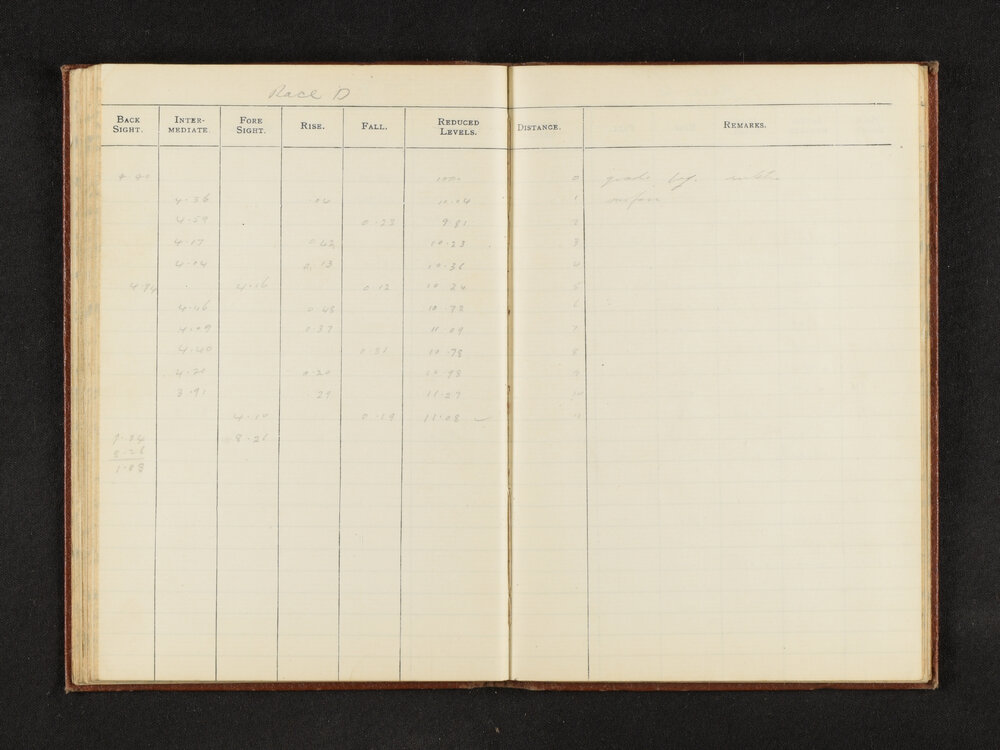 Race D
BACK SIGHT. INTER- MEDIATE. FORE SIGHT. RISE. FALL. REDUCED LEVELS. DISTANCE. REMARKS.
4.40 0 grade
4.36 .04 1
4.59 0.23 9.81 2
4.17 0.42 10.23 3
4.04 0.13 10.36 4
4.94 4.16 0.12 10.24 5
4.46 0.48 10.72 6
4.09 0.37 11.09 7
4.40 0.31 10.78 8
4.20 0.20 10.98 9
3.91 .29 11.27 10
4.10 0.19 11.08 ✓
9.34 8.26
8.26
1.08